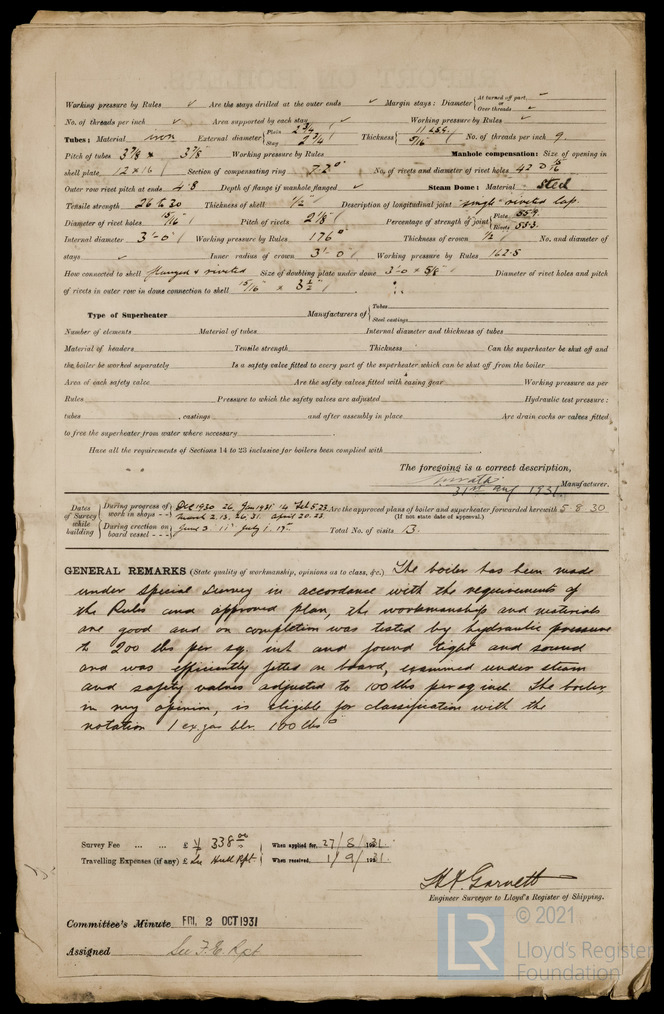 Working pressure by Rules ✓ Are the stays drilled at the outer ends ✓ Margin stays: Diameter { At turned off part, ✓ or Over threads ✓
No. of threads per inch ✓ Area supported by each stay ✓ Working pressure by Rules ✓
Tubes: Material iron External diameter { Plain 2 3/4" Stay 2 3/4" Thickness { 11 L.S.G. 5/16" No. of threads per inch 9.
Pitch of tubes 3 7/8 × 3 7/8" Working pressure by Rules Manhole compensation: Size of opening in
shell plate 12 × 16" Section of compensating ring No. of rivets and diameter of rivet holes 42 @ 15/16
Outer row rivet pitch at ends 4.8 Depth of flange if manhole flanged ✓ Steam Dome: Material Steel
Tensile strength 26 to 30 Thickness of shell 1/2" Description of longitudinal joint single riveted lap.
Diameter of rivet holes 15/16" Pitch of rivets 2 1/8" Percentage of strength of joint { Plate 55.9. Rivets 53.3.
Internal diameter 3'-0" Working pressure by Rules 176 Thickness of crown 1/2" No. and diameter of
stays ✓ Inner radius of crown 3'-0" Working pressure by Rules 162.5
How connected to shell flanged & riveted Size of doubling plate under dome 3'-0 × 5/8" Diameter of rivet holes and pitch
of rivets in outer row in dome connection to shell 15/16" × 3 1/2"
Type of Superheater Manufacturers of { Tubes Steel castings
Number of elements Material of tubes Internal diameter and thickness of tubes
Material of headers Tensile strength Thickness Can the superheater be shut off and
the boiler be worked separately Is a safety valve fitted to every part of the superheater which can be shut off from the boiler
Area of each safety valve Are the safety valves fitted with easing gear Working pressure as per
Rules Pressure to which the safety valves are adjusted Hydraulic test pressure:
tubes , castings and after assembly in place Are drain cocks or valves fitted
to free the superheater from water where necessary
Have all the requirements of Sections 14 to 23 inclusive for boilers been complied with
The foregoing is a correct description,
31st Aug 1931. Manufacturer.
Dates of Survey while building { During progress of work in shops - - Oct 1930 26. Jan 1931 14 Feb 5.23 March 2.13.26.31. April 20.23 Are the approved plans of boiler and superheater forwarded herewith 5.8.30
(If not state date of approval.)
During erection on board vessel - - - June 3 11 July 1.17. Total No. of visits 13.
GENERAL REMARKS (State quality of workmanship, opinions as to class, &c.) The boiler has been made
under special survey in accordance with the requirements of
the Rules and approved plan, the workmanship and materials
are good and on completion was tested by hydraulic pressure
to 200 lbs per sq. inch and found tight and sound
and was efficiently fitted on board, examined under steam
and safety valves adjusted to 100 lbs per sq inch. The boiler,
in my opinion, is eligible for classification with the
notation 1 ex gas blr. 100 lbs
Survey Fee ... ... £ 338.00 When applied for, 27/8/1931.
Travelling Expenses (if any) £ See Hull Rpt When received, 1/9/1931.
Garnett
Engineer Surveyor to Lloyd's Register of Shipping.
Committee's Minute FRI. 2 OCT 1931
Assigned See F.E. Rpt
LR © 2021
Lloyd's Register
Foundation